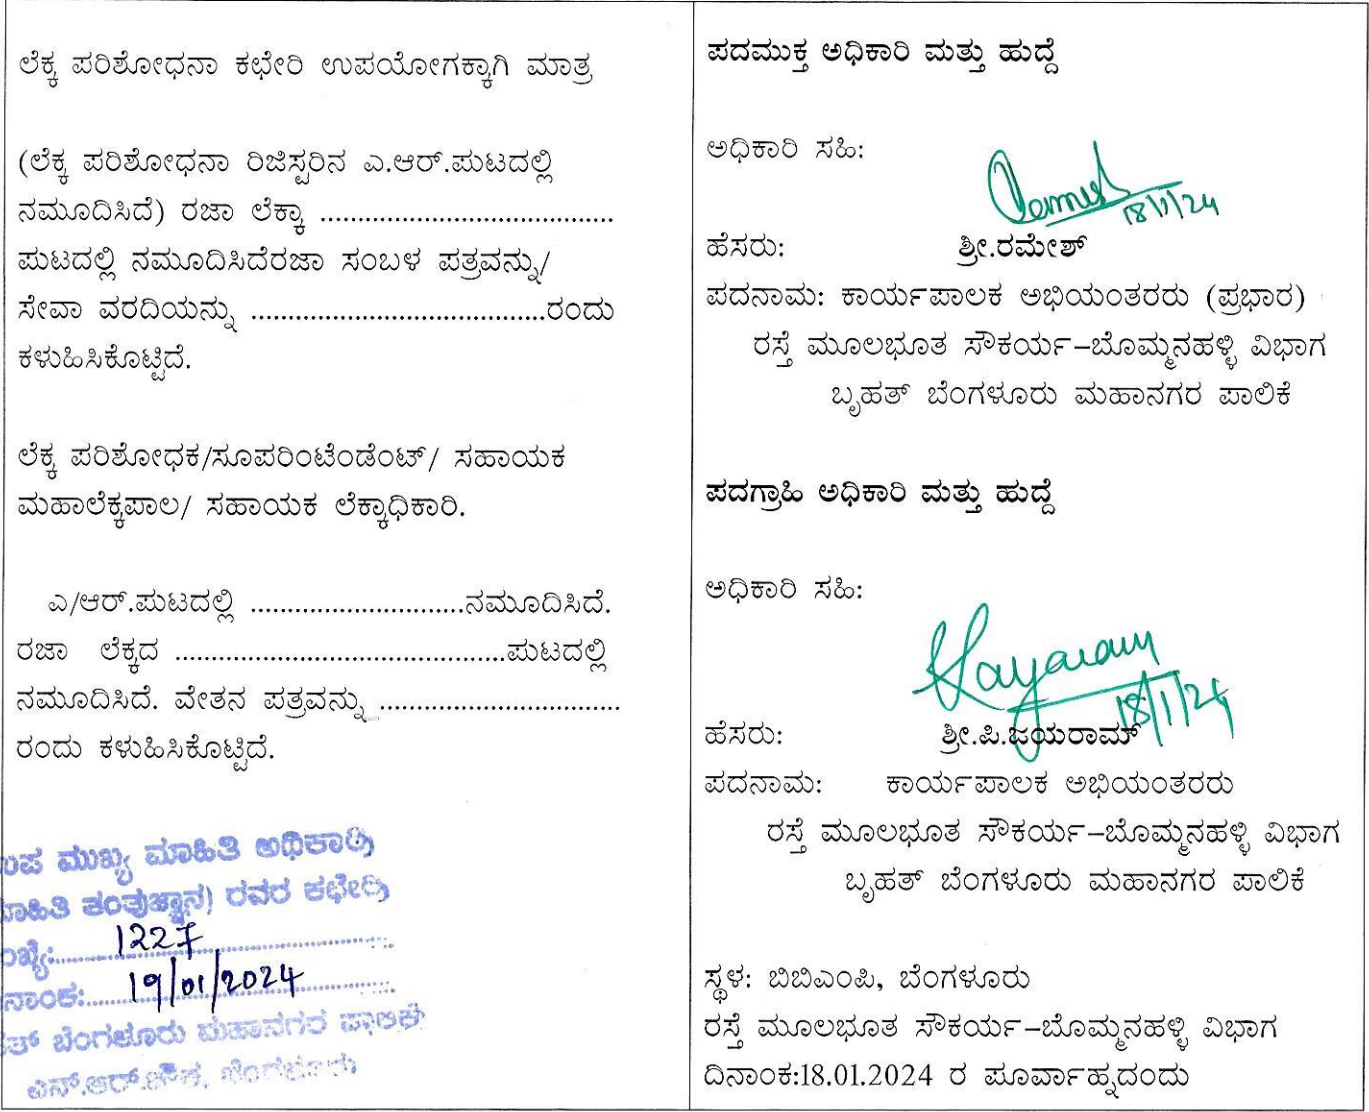 ಲೆಕ್ಕ ಪರಿಶೋಧನಾ ಕಛೇರಿ ಉಪಯೋಗಕ್ಕಾಗಿ ಮಾತ್ರ
(ಲೆಕ್ಕ ಪರಿಶೋಧನಾ ರಿಜಿಸ್ಟರಿನ ಎ.ಆರ್.ಪುಟದಲ್ಲಿ
ನಮೂದಿಸಿದೆ) ರಜಾ ಲೆಕ್ಕಾ .................................................
ಪುಟದಲ್ಲಿ ನಮೂದಿಸಿದೆರಜಾ ಸಂಬಳ ಪತ್ರವನ್ನು/
ಸೇವಾ ವರದಿಯನ್ನು .................................................ರಂದು
ಕಳುಹಿಸಿಕೊಟ್ಟಿದೆ.
ಲೆಕ್ಕ ಪರಿಶೋಧಕ/ಸೂಪರಿಂಟೆಂಡೆಂಟ್/ ಸಹಾಯಕ
ಮಹಾಲೆಕ್ಕಪಾಲ/ ಸಹಾಯಕ ಲೆಕ್ಕಾಧಿಕಾರಿ.
ಎ/ಆರ್.ಪುಟದಲ್ಲಿ ....................................ನಮೂದಿಸಿದೆ.
ರಜಾ ಲೆಕ್ಕದ ........................................................ಪುಟದಲ್ಲಿ
ನಮೂದಿಸಿದೆ. ವೇತನ ಪತ್ರವನ್ನು ........................................
ರಂದು ಕಳುಹಿಸಿಕೊಟ್ಟಿದೆ.
ಉಪ ಮುಖ್ಯ ಮಾಹಿತಿ ಅಧಿಕಾರಿ
ಮಾಹಿತಿ ತಂತ್ರಜ್ಞಾನ) ರವರ ಕಛೇರಿ
ಸಂಖ್ಯೆ: 1227
ದಿನಾಂಕ: 19/01/2024
ಬೆಂಗಳೂರು ಮಹಾನಗರ ಪಾಲಿಕೆ
ಎನ್.ಆರ್.ಚೌಕ, ಬೆಂಗಳೂರು
ಪದಮುಕ್ತ ಅಧಿಕಾರಿ ಮತ್ತು ಹುದ್ದೆ
ಅಧಿಕಾರಿ ಸಹಿ:
18/1/24
ಹೆಸರು: ಶ್ರೀ.ರಮೇಶ್
ಪದನಾಮ: ಕಾರ್ಯಪಾಲಕ ಅಭಿಯಂತರರು (ಪ್ರಭಾರ)
ರಸ್ತೆ ಮೂಲಭೂತ ಸೌಕರ್ಯ-ಬೊಮ್ಮನಹಳ್ಳಿ ವಿಭಾಗ
ಬೃಹತ್ ಬೆಂಗಳೂರು ಮಹಾನಗರ ಪಾಲಿಕೆ
ಪದಗ್ರಾಹಿ ಅಧಿಕಾರಿ ಮತ್ತು ಹುದ್ದೆ
ಅಧಿಕಾರಿ ಸಹಿ:
18/1/24
ಹೆಸರು: ಶ್ರೀ.ಪಿ.ಜಯರಾಮ್
ಪದನಾಮ: ಕಾರ್ಯಪಾಲಕ ಅಭಿಯಂತರರು
ರಸ್ತೆ ಮೂಲಭೂತ ಸೌಕರ್ಯ-ಬೊಮ್ಮನಹಳ್ಳಿ ವಿಭಾಗ
ಬೃಹತ್ ಬೆಂಗಳೂರು ಮಹಾನಗರ ಪಾಲಿಕೆ
ಸ್ಥಳ: ಬಿಬಿಎಂಪಿ, ಬೆಂಗಳೂರು
ರಸ್ತೆ ಮೂಲಭೂತ ಸೌಕರ್ಯ-ಬೊಮ್ಮನಹಳ್ಳಿ ವಿಭಾಗ
ದಿನಾಂಕ:18.01.2024 ರ ಪೂರ್ವಾಹ್ನದಂದು